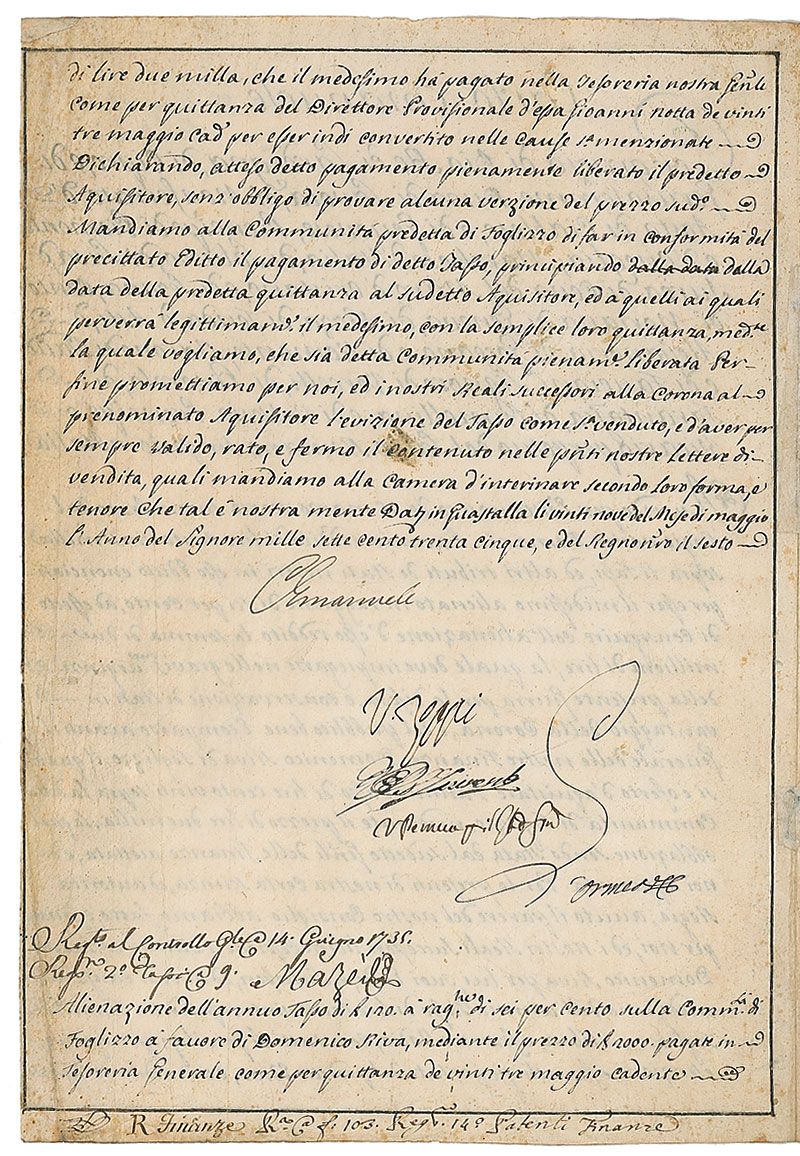 di lire due milla, che il medesimo há pagato nella Tesoreria nostra Gen̄le
come per quittanza del Direttore Provisionale d'essa Gioanni notta de vinti
tre maggio Cad.ᵉ per esser indi convertito nelle cause s.ᵃ menzionate
Dichiarando, atteso detto pagamento pienamente liberato il predetto
Aquisitore, senz'obbligo di provare alcuna verzione del prezzo sud.º
Mandiamo alla Communitá predetta di Foglizzo di far in conformitá del
precittato Editto il pagamento di detto Tasso, principiando dalla data dalla
data della predetta quittanza al sudetto Aquisitore, ed á quelli ai quali
perverrá legittimam.ᵉ il medesimo, con la semplice loro quittanza, med.ᵗᵉ
la quale vogliamo, che sia detta Communitá pienam.ᵉ liberata Per-
fine promettiamo per noi, ed i nostri Reali successori alla Corona al
prenominato Aquisitore l'evizione del Tasso come s.ᵃ venduto, e d'aver per
sempre valido, rato, e fermo il contenuto nelle pn̄ti nostre Lettere di-
vendita, quali mandiamo alla Camera d'interinare secondo Loro forma, e
tenore che tal é nostra mente Dat. in Guastalla li vinti nove del Mese di maggio
l'Anno del Signore mille sette cento trenta cinque, e del Regno nr̄o il sesto
CEmanuele
V. Zoppi
Ormea
Reg.ᵗᵃ al Controllo G.ˡᵉ 14. Giugno 1735.
Reg.ʳᵒ 2º Tassi 9.
Alienazione dell'annuo Tasso di £ 120. á rag.ⁿᵉ di sei per cento sulla Comm.ᵗᵃ di
Foglizzo á favore di Domenico Riva, mediante il prezzo di £ 2000. pagate in
Tesoreria Generale come per quittanza de vinti tre maggio cadente
R Finanze f. 103. Reg.ʳᵒ 14º Patenti Finanze